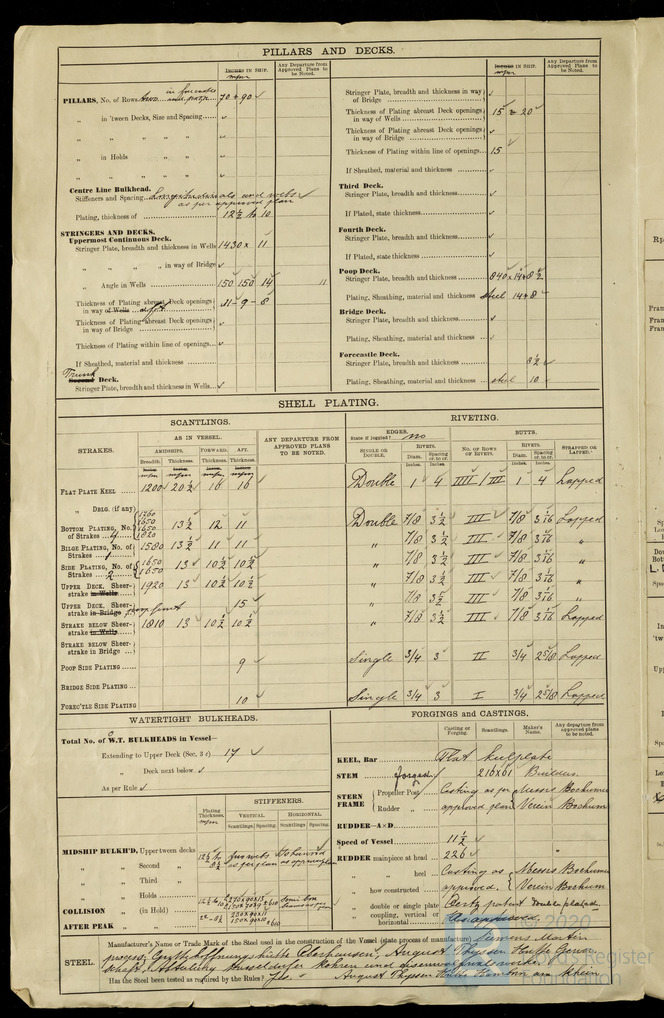 PILLARS AND DECKS.
Inches in Ship.
Any Departure from Approved Plans to be Noted.
PILLARS, No. of Rows 70 + 90
„ in 'tween Decks, Size and Spacing
„ in Holds
Centre Line Bulkhead.
Stiffeners and Spacing
as per approved plan
Plating, thickness of 12½ to 10
STRINGERS AND DECKS.
Uppermost Continuous Deck.
Stringer Plate, breadth and thickness in Wells 1430 x 11
„ „ „ „ in way of Bridge
„ Angle in Wells 150 150 14
Thickness of Plating abreast Deck openings in way of Wells 11 - 9 - 8
Thickness of Plating abreast Deck openings in way of Bridge
Thickness of Plating within line of openings
If Sheathed, material and thickness
Trunk
Second Deck.
Stringer Plate, breadth and thickness in Wells
Inches in Ship.
Any Departure from Approved Plans to be Noted.
Stringer Plate, breadth and thickness in way of Bridge
Thickness of Plating abreast Deck openings in way of Wells 15 20
Thickness of Plating abreast Deck openings in way of Bridge
Thickness of Plating within line of openings 15
If Sheathed, material and thickness
Third Deck.
Stringer Plate, breadth and thickness
If Plated, state thickness
Fourth Deck.
Stringer Plate, breadth and thickness
If Plated, state thickness
Poop Deck.
Stringer Plate, breadth and thickness 840 x 14 x 8½
Plating, Sheathing, material and thickness steel 14 & 8
Bridge Deck.
Stringer Plate, breadth and thickness
Plating, Sheathing, material and thickness
Forecastle Deck.
Stringer Plate, breadth and thickness 8½
Plating, Sheathing, material and thickness steel 10
SHELL PLATING.
SCANTLINGS.
RIVETING.
STRAKES.
AS IN VESSEL.
AMIDSHIPS. FORWARD. AFT.
Breadth. Thickness. Thickness. Thickness.
ANY DEPARTURE FROM APPROVED PLANS TO BE NOTED.
EDGES.
State if joggled? no
SINGLE OR DOUBLE.
RIVETS.
Diam. Spacing cr. to cr.
Inches. Inches.
BUTTS.
NO. OF ROWS OF RIVETS.
RIVETS.
Diam. Spacing cr. to cr.
Inches. Inches.
STRAPPED OR LAPPED.
FLAT PLATE KEEL 1200 20½ 16 16 Double 1 4 IIII / III 1 4 Lapped
„ DBLG. (if any)
BOTTOM PLATING, No. of Strakes 4 1760 1650 1650 1820 13½ 12 11 Double 7/8 3½ III 7/8 3 1/16 Lapped
BILGE PLATING, No. of Strakes 1 1580 13½ 11 11 „ 7/8 3½ III 7/8 3 1/16 „
SIDE PLATING, No. of Strakes 2 1650 1650 13 10½ 10½ „ 7/8 3½ III 7/8 3 1/16 „
UPPER DECK, Sheerstrake in Wells 1920 13 10½ 10½ „ 7/8 3½ III 7/8 3 1/16 „
UPPER DECK, Sheerstrake in Bridge 15 „ 7/8 3½ III 7/8 3 1/16 „
STRAKE BELOW Sheerstrake in Wells 1810 13 10½ 10½ „ 7/8 3½ III 7/8 3 1/16 Lapped
STRAKE BELOW Sheerstrake in Bridge
POOP SIDE PLATING 9 Single 3/4 3 II 3/4 2 5/8 Lapped
BRIDGE SIDE PLATING
FOREC'TLE SIDE PLATING 10 Single 3/4 3 I 3/4 2 5/8 Lapped
WATERTIGHT BULKHEADS.
Total No. of W.T. BULKHEADS in Vessel—
Extending to Upper Deck (Sec. 3 c) 17
„ Deck next below
As per Rule
Plating Thickness.
STIFFENERS.
VERTICAL. HORIZONTAL.
Scantlings. Spacing. Scantlings. Spacing.
MIDSHIP BULKH'D, Upper tween decks
„ Second „
„ Third „
„ Holds
COLLISION (in Hold)
AFTER PEAK
FORGINGS AND CASTINGS.
Casting or Forging. Scantlings. Maker's Name. Any departure from approved plans to be noted.
KEEL, Bar Flat keelplate
STEM forged 210x61 Builders.
STERN FRAME
Propeller Post Casting as per Messrs Bochumer
Rudder „ approved plan Verein Bochum
RUDDER—A×D
Speed of Vessel 11½
RUDDER mainpiece at head 226 „
„ heel Casting as Messrs Bochumer
„ how constructed approved. Verein Bochum
„ double or single plate Oertz patent Double plated
„ coupling, vertical or horizontal As approved.
STEEL.
Manufacturer's Name or Trade Mark of the Steel used in the construction of the Vessel (state process of manufacture) Siemens Martin
process; Gutehoffnungshütte Oberhausen; August Thyssen Hütte Gewerkschaft, Abteilung Düsseldorfer Röhren und Eisenwalzwerke.
August Thyssen Hütte Hamborn am Rhein
Has the Steel been tested as required by the Rules? Yes.
© 2020
Lloyd's Register
Foundation